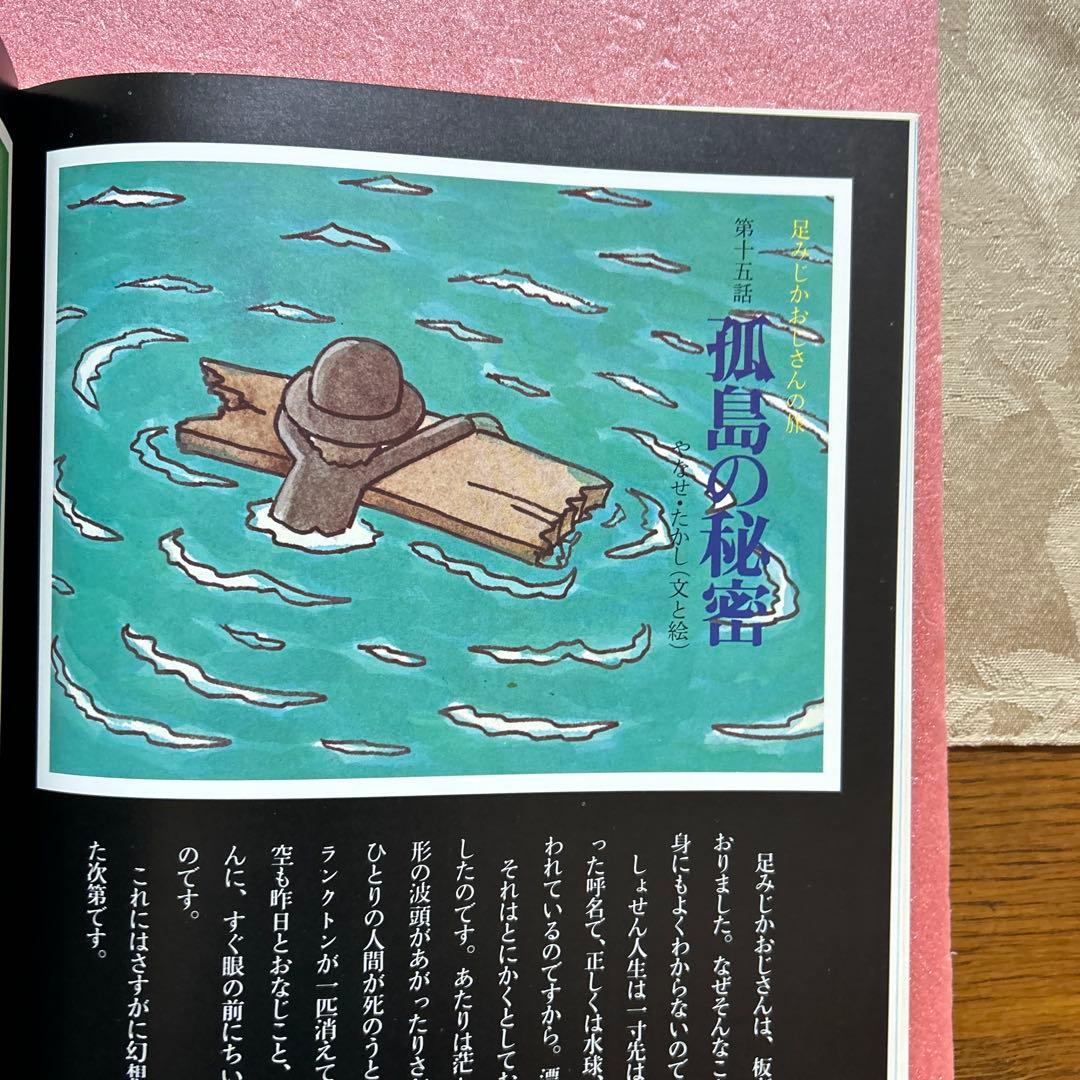 足みじかおじさんの旅
第十五話
孤島の秘密
やなせ・たかし（文と絵）
足みじかおじさんは、板
おりました。なぜそんなこ
身にもよくわからないので
しょせん人生は一寸先は
った呼名で、正しくは水球、
われているのですから。漂
それはとにかくとしてお
したのです。あたりは茫
形の波頭があがったりさが
ひとりの人間が死のうと
ランクトンが一匹消えて
空も昨日とおなじこと、
んに、すぐ眼の前にちい
のです。
これにはさすがに幻想
た次第です。